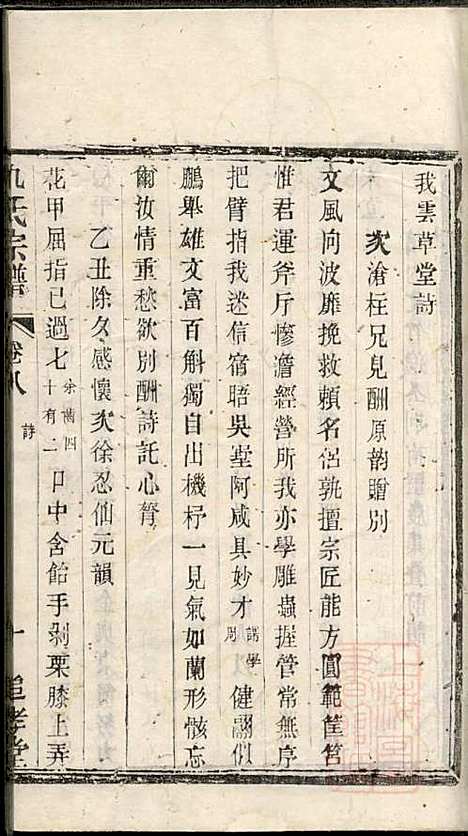 我雲草堂詩
次滄柱兄見酬原韵贈別
文風向波靡挽救賴名侣孰擅宗匠能方圓範筐筥
惟君運斧斤慘澹經營所我亦學雕蟲握管常無序
把臂指我迷信宿晤吳堂阿咸具妙才謂學周健翮似
鵬舉雄文富百斛獨自出機杼一見氣如蘭形骸忘
爾汝情重愁欲別酬詩託心膂
乙丑除夕感懷次徐忍仙元韻
花甲屈指已過七余齒四十有二口中含飴手剥栗膝上弄
仇氏宗譜 卷八 詩 一 追孝堂